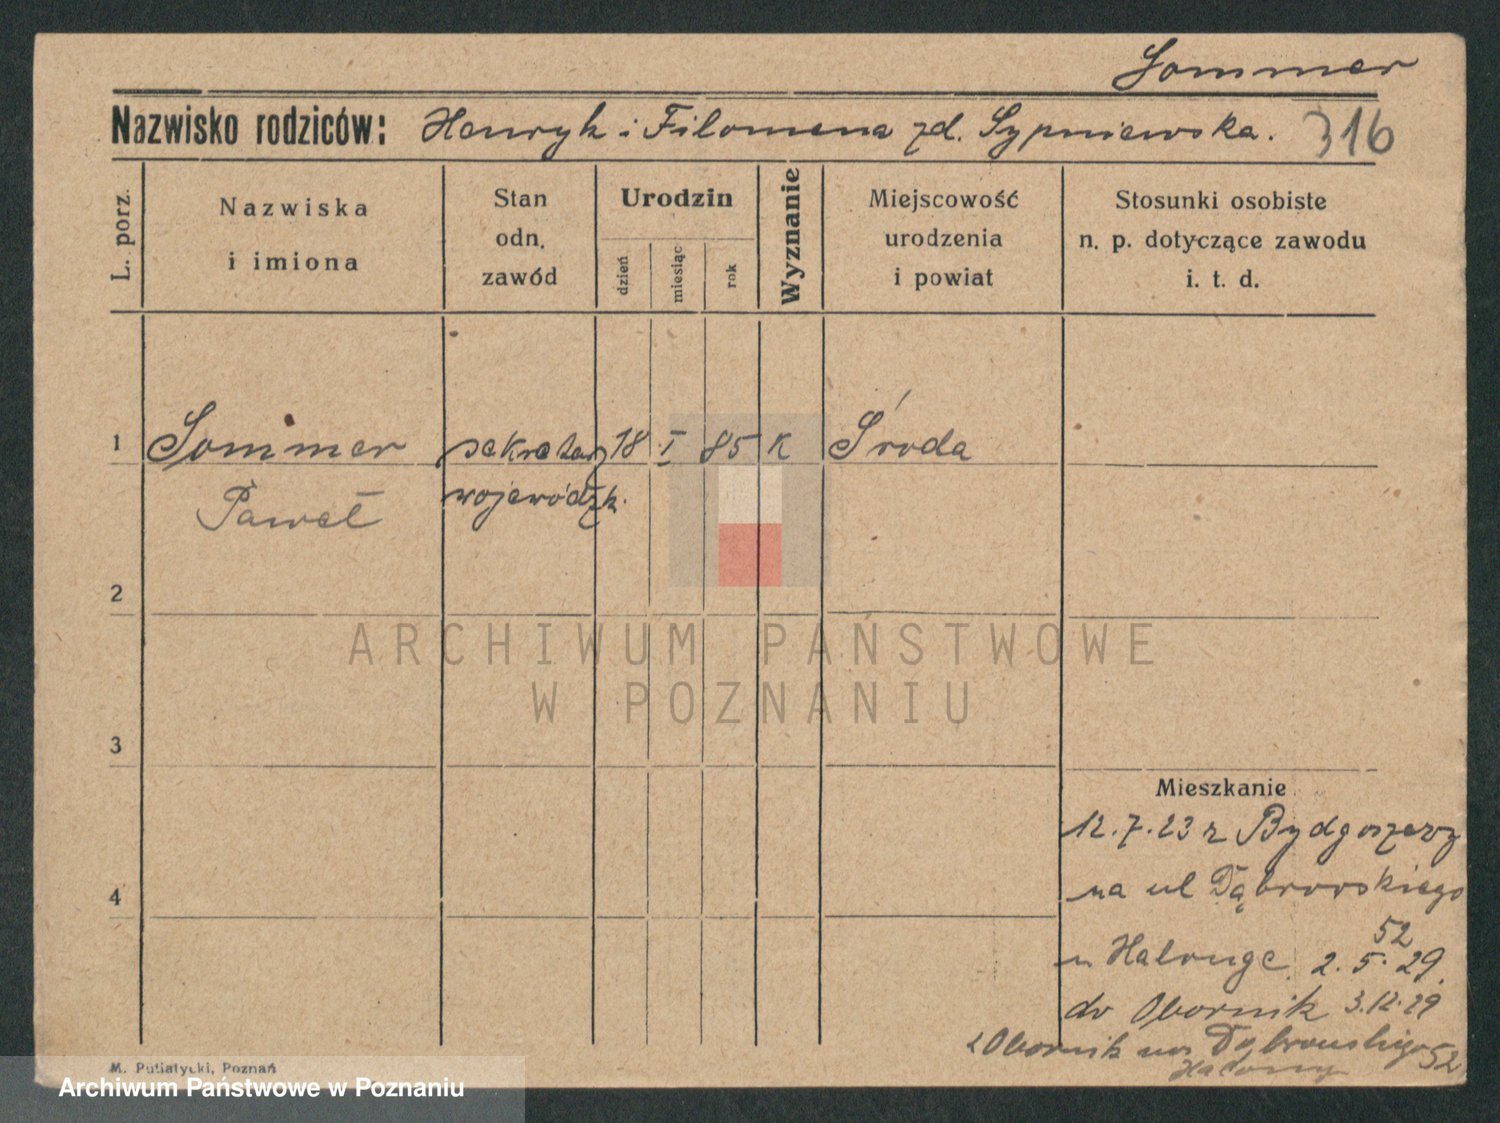 Sommer
Nazwisko rodziców: Henryk i Filomena zd. Sypniewska. 316
L. porz.
Nazwiska
i imiona
Stan
odn.
zawód
Urodzin
dzień
miesiąc
rok
Wyznanie
Miejscowość
urodzenia
i powiat
Stosunki osobiste
n. p. dotyczące zawodu
i. t. d.
1 Sommer sekretarz 18 I 85 K Środa
Paweł wojewódzk.
2
ARCHIWUM PAŃSTWOWE
W POZNANIU
3
Mieszkanie
12.7.23 z Bydgoszczy
4
na ul Dąbrowskiego
52
u 2.5.29.
do Obornik 3.12.29
z Obornik na Dąbrowskiego 52
M. Putiatycki, Poznań
Archiwum Państwowe w Poznaniu